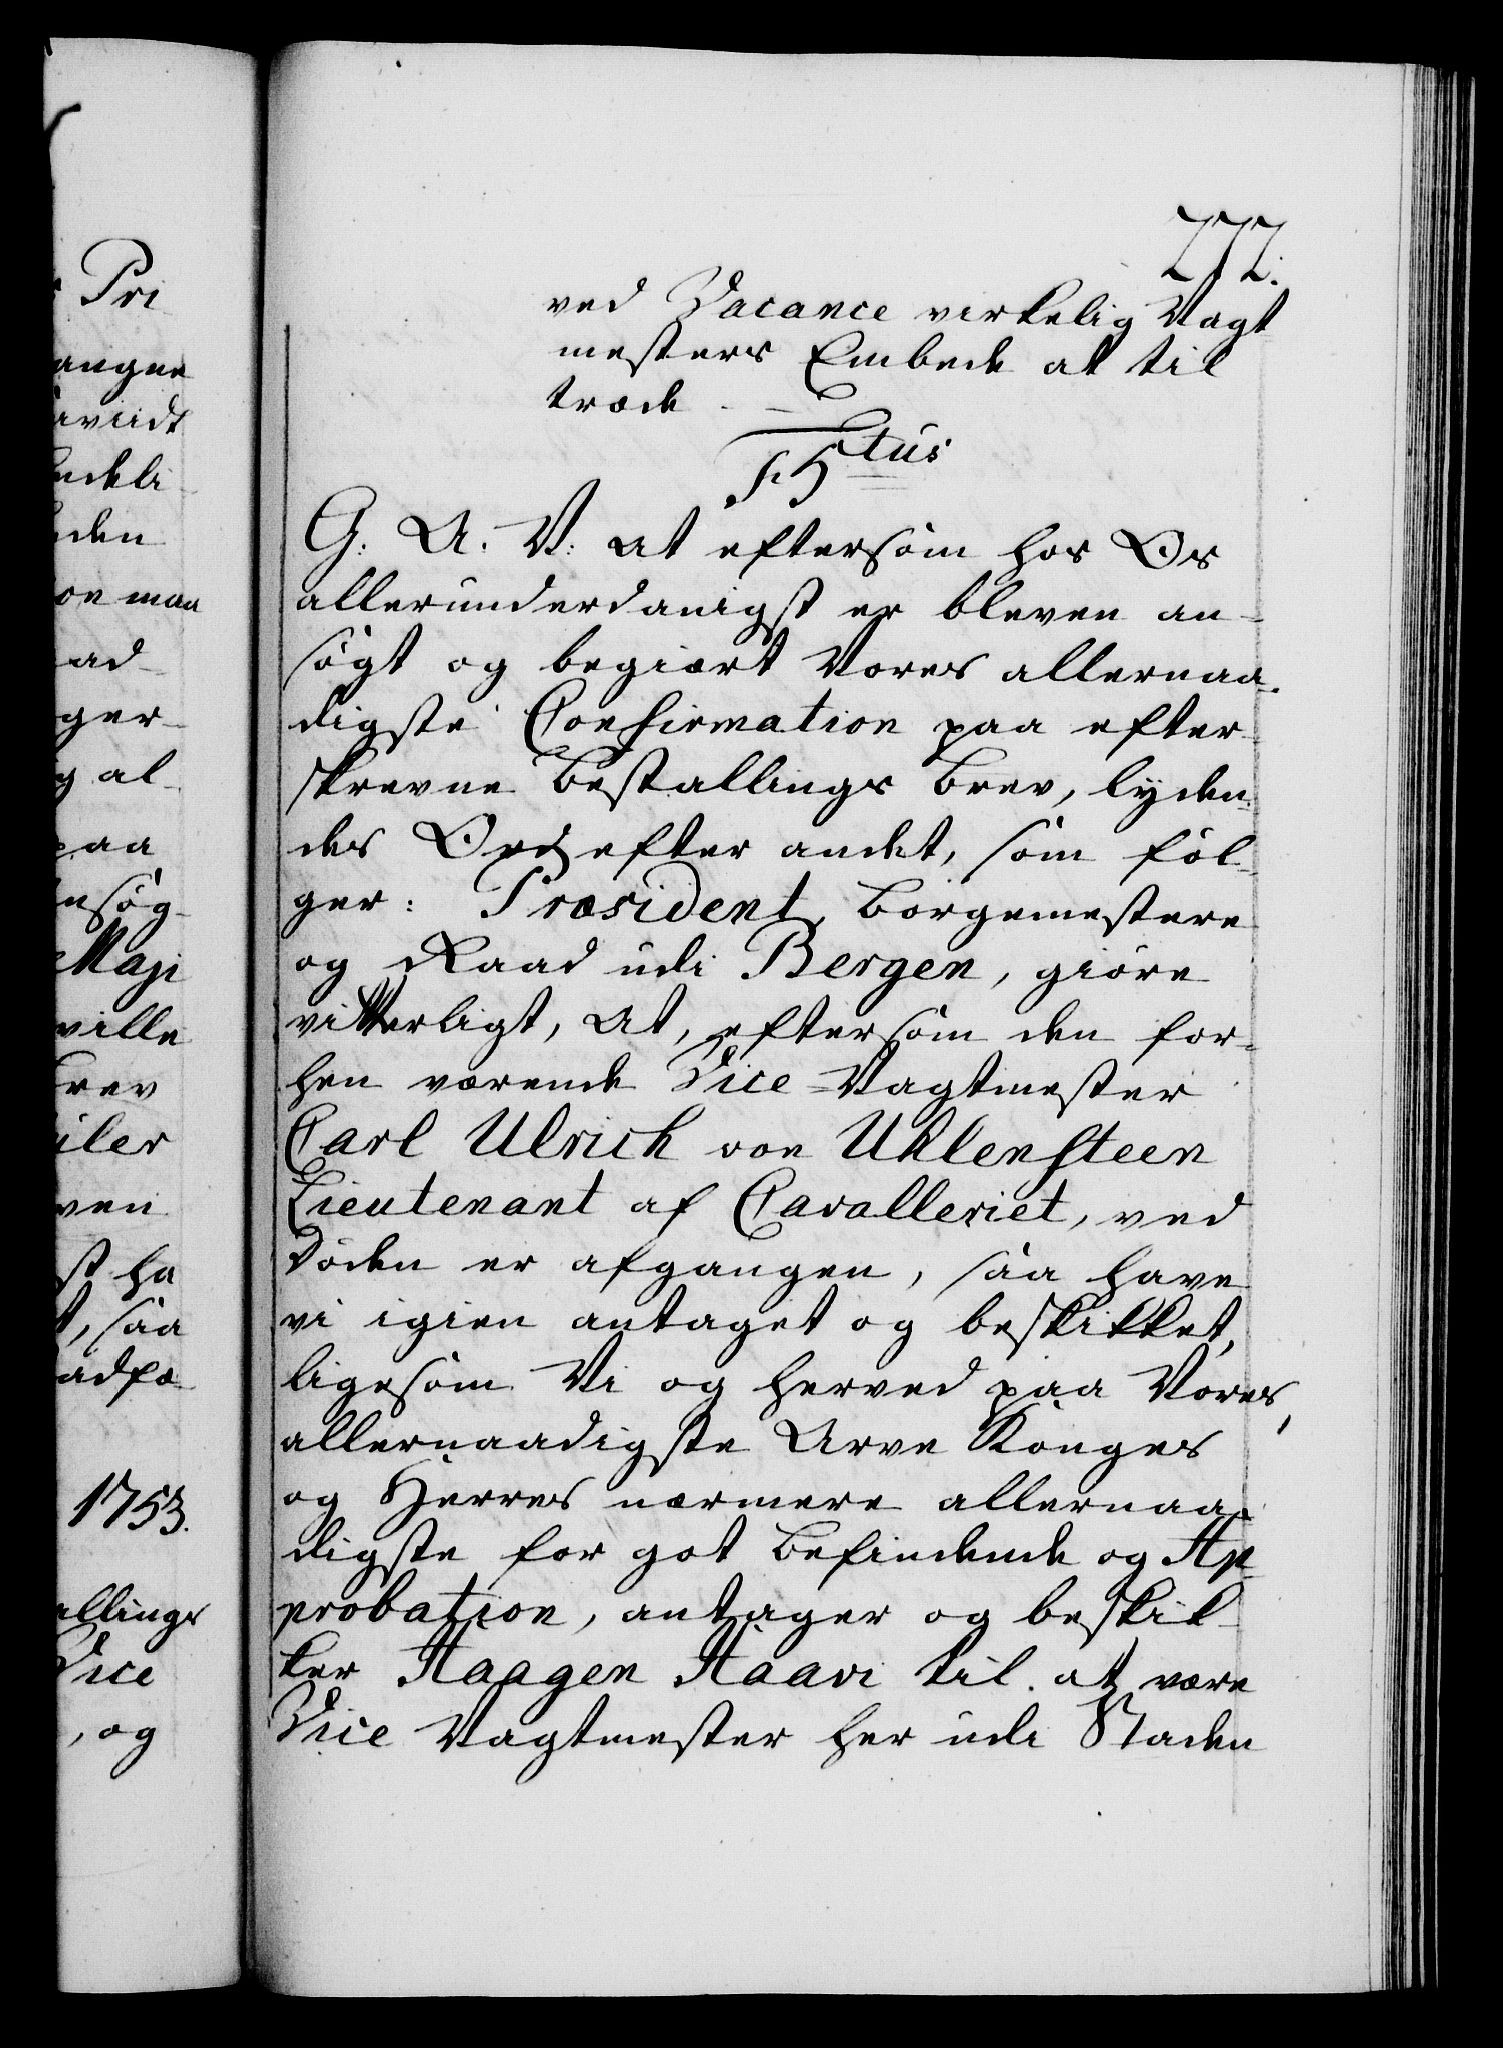 277.
ved Vacance virkelig Vagt
mesters Embede at til
træde
F5tus
G. A. V: at eftersom hos Os
allerunderdanigst er bleven an-
søgt og begiært Vores allernaa-
digste Confirmation paa efter-
skrevne Bestallings Brev, lyden-
des Ord efter andet, som föl-
ger: Præsident, Borgemestere
og Raad udi Bergen, giöre
vitterligt, at, eftersom den for-
hen værende Vice-Vagtmester
Carl Ulrich von Uhlensteen
Lieutenant af Cavalleriet, ved
Döden er afgangen, saa have
vi igien antaget og beskikket,
ligesom Vi og herved paa Vores
allernaadigste Arve Konges
og Herres nærmere allernaa-
digste for got befindende og Ap-
probation, antager og beskik-
ker Haagen Haavi til at være
Vice Vagtmester her udi Staden
Pri
angne
den
maa
ad-
ger-
g al-
paa
nsög-
Maji
ville
Brev
ven
st ha
t, saa
1753.
allings
Vice
, og